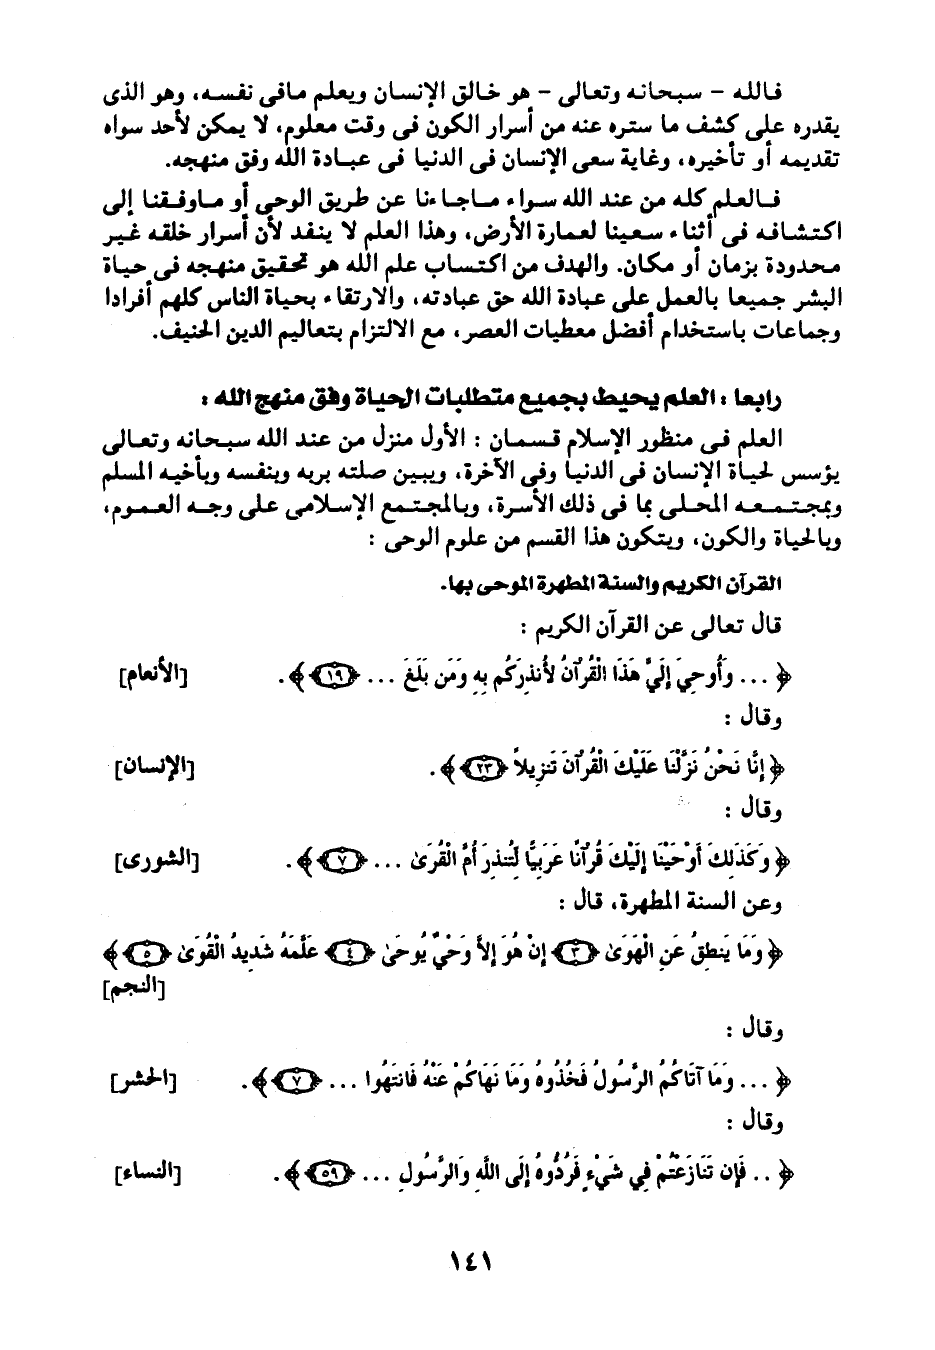 فالله - سبحانه وتعالى - هو خالق الإنسان ويعلم مافى نفسه، وهو الذى
يقدره على كشف ما ستره عنه من أسرار الكون فى وقت معلوم، لا يمكن لأحد سواه
تقديمه أو تأخيره، وغاية سعى الإنسان فى الدنيا فى عبادة الله وفق منهجه.
فالعلم كله من عند الله سواء ماجاءنا عن طريق الوحى أو ماوفقنا إلى
اكتشافه فى أثناء سعينا لعمارة الأرض، وهذا العلم لا ينفد لأن أسرار خلقه غير
محدودة بزمان أو مكان. والهدف من اكتساب علم الله هو تحقيق منهجه فى حياة
البشر جميعا بالعمل على عبادة الله حق عبادته، والارتقاء بحياة الناس كلهم أفرادا
وجماعات باستخدام أفضل معطيات العصر، مع الالتزام بتعاليم الدين الحنيف.
رابعا : العلم يحيط بجميع متطلبات الحياة وفق منهج الله :
العلم فى منظور الإسلام قسمان : الأول منزل من عند الله سبحانه وتعالى
يؤسس لحياة الإنسان فى الدنيا وفى الآخرة، ويبين صلته بربه وبنفسه وبأخيه المسلم
وبمجتمعه المحلى بما فى ذلك الأسرة، وبالمجتمع الإسلامى على وجه العموم،
وبالحياة والكون، ويتكون هذا القسم من علوم الوحى :
القرآن الكريم والسنة المطهرة الموحى بها.
قال تعالى عن القرآن الكريم :
﴿ ... وَأُوحِيَ إِلَيَّ هَذَا الْقُرْآنُ لأُنذِرَكُم بِهِ وَمَن بَلَغَ ... ﴿١٩﴾﴾. [الأنعام]
وقال :
﴿ إِنَّا نَحْنُ نَزَّلْنَا عَلَيْكَ الْقُرْآنَ تَنزِيلاً ﴿٢٣﴾﴾. [الإنسان]
وقال :
﴿ وَكَذَلِكَ أَوْحَيْنَا إِلَيْكَ قُرْآنًا عَرَبِيًّا لِّتُنذِرَ أُمَّ الْقُرَىٰ ... ﴿٧﴾﴾. [الشورى]
وعن السنة المطهرة، قال :
﴿ وَمَا يَنطِقُ عَنِ الْهَوَىٰ ﴿٣﴾ إِنْ هُوَ إِلاَّ وَحْيٌ يُوحَىٰ ﴿٤﴾ عَلَّمَهُ شَدِيدُ الْقُوَىٰ ﴿٥﴾﴾
[النجم]
وقال :
﴿ ... وَمَا آتَاكُمُ الرَّسُولُ فَخُذُوهُ وَمَا نَهَاكُمْ عَنْهُ فَانتَهُوا ... ﴿٧﴾﴾. [الحشر]
وقال :
﴿ .. فَإِن تَنَازَعْتُمْ فِي شَيْءٍ فَرُدُّوهُ إِلَى اللَّهِ وَالرَّسُولِ ... ﴿٥٩﴾﴾. [النساء]
١٤١